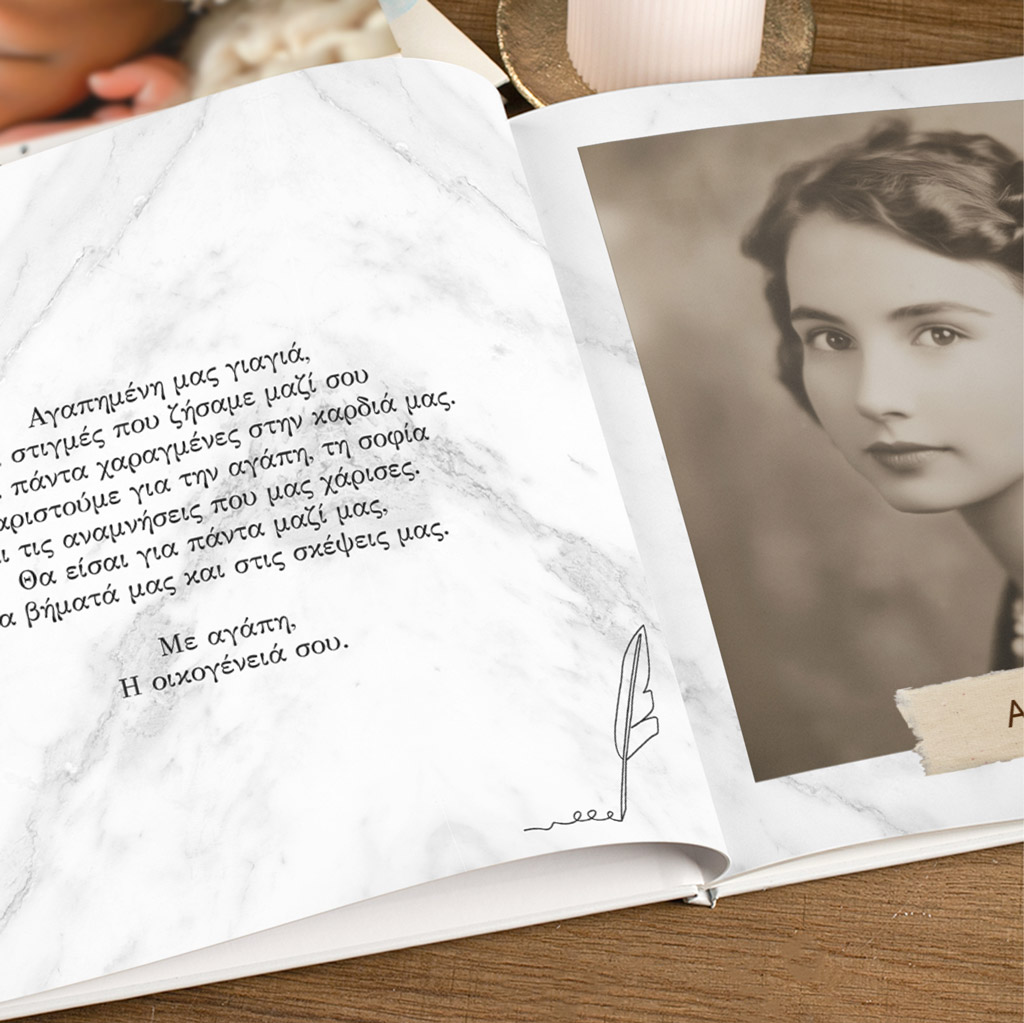 Αγαπημένη μας γιαγιά,
στιγμές που ζήσαμε μαζί σου
πάντα χαραγμένες στην καρδιά μας.
αριστούμε για την αγάπη, τη σοφία
ι τις αναμνήσεις που μας χάρισες.
Θα είσαι για πάντα μαζί μας,
α βήματά μας και στις σκέψεις μας.
Με αγάπη,
Η οικογένειά σου.
Α